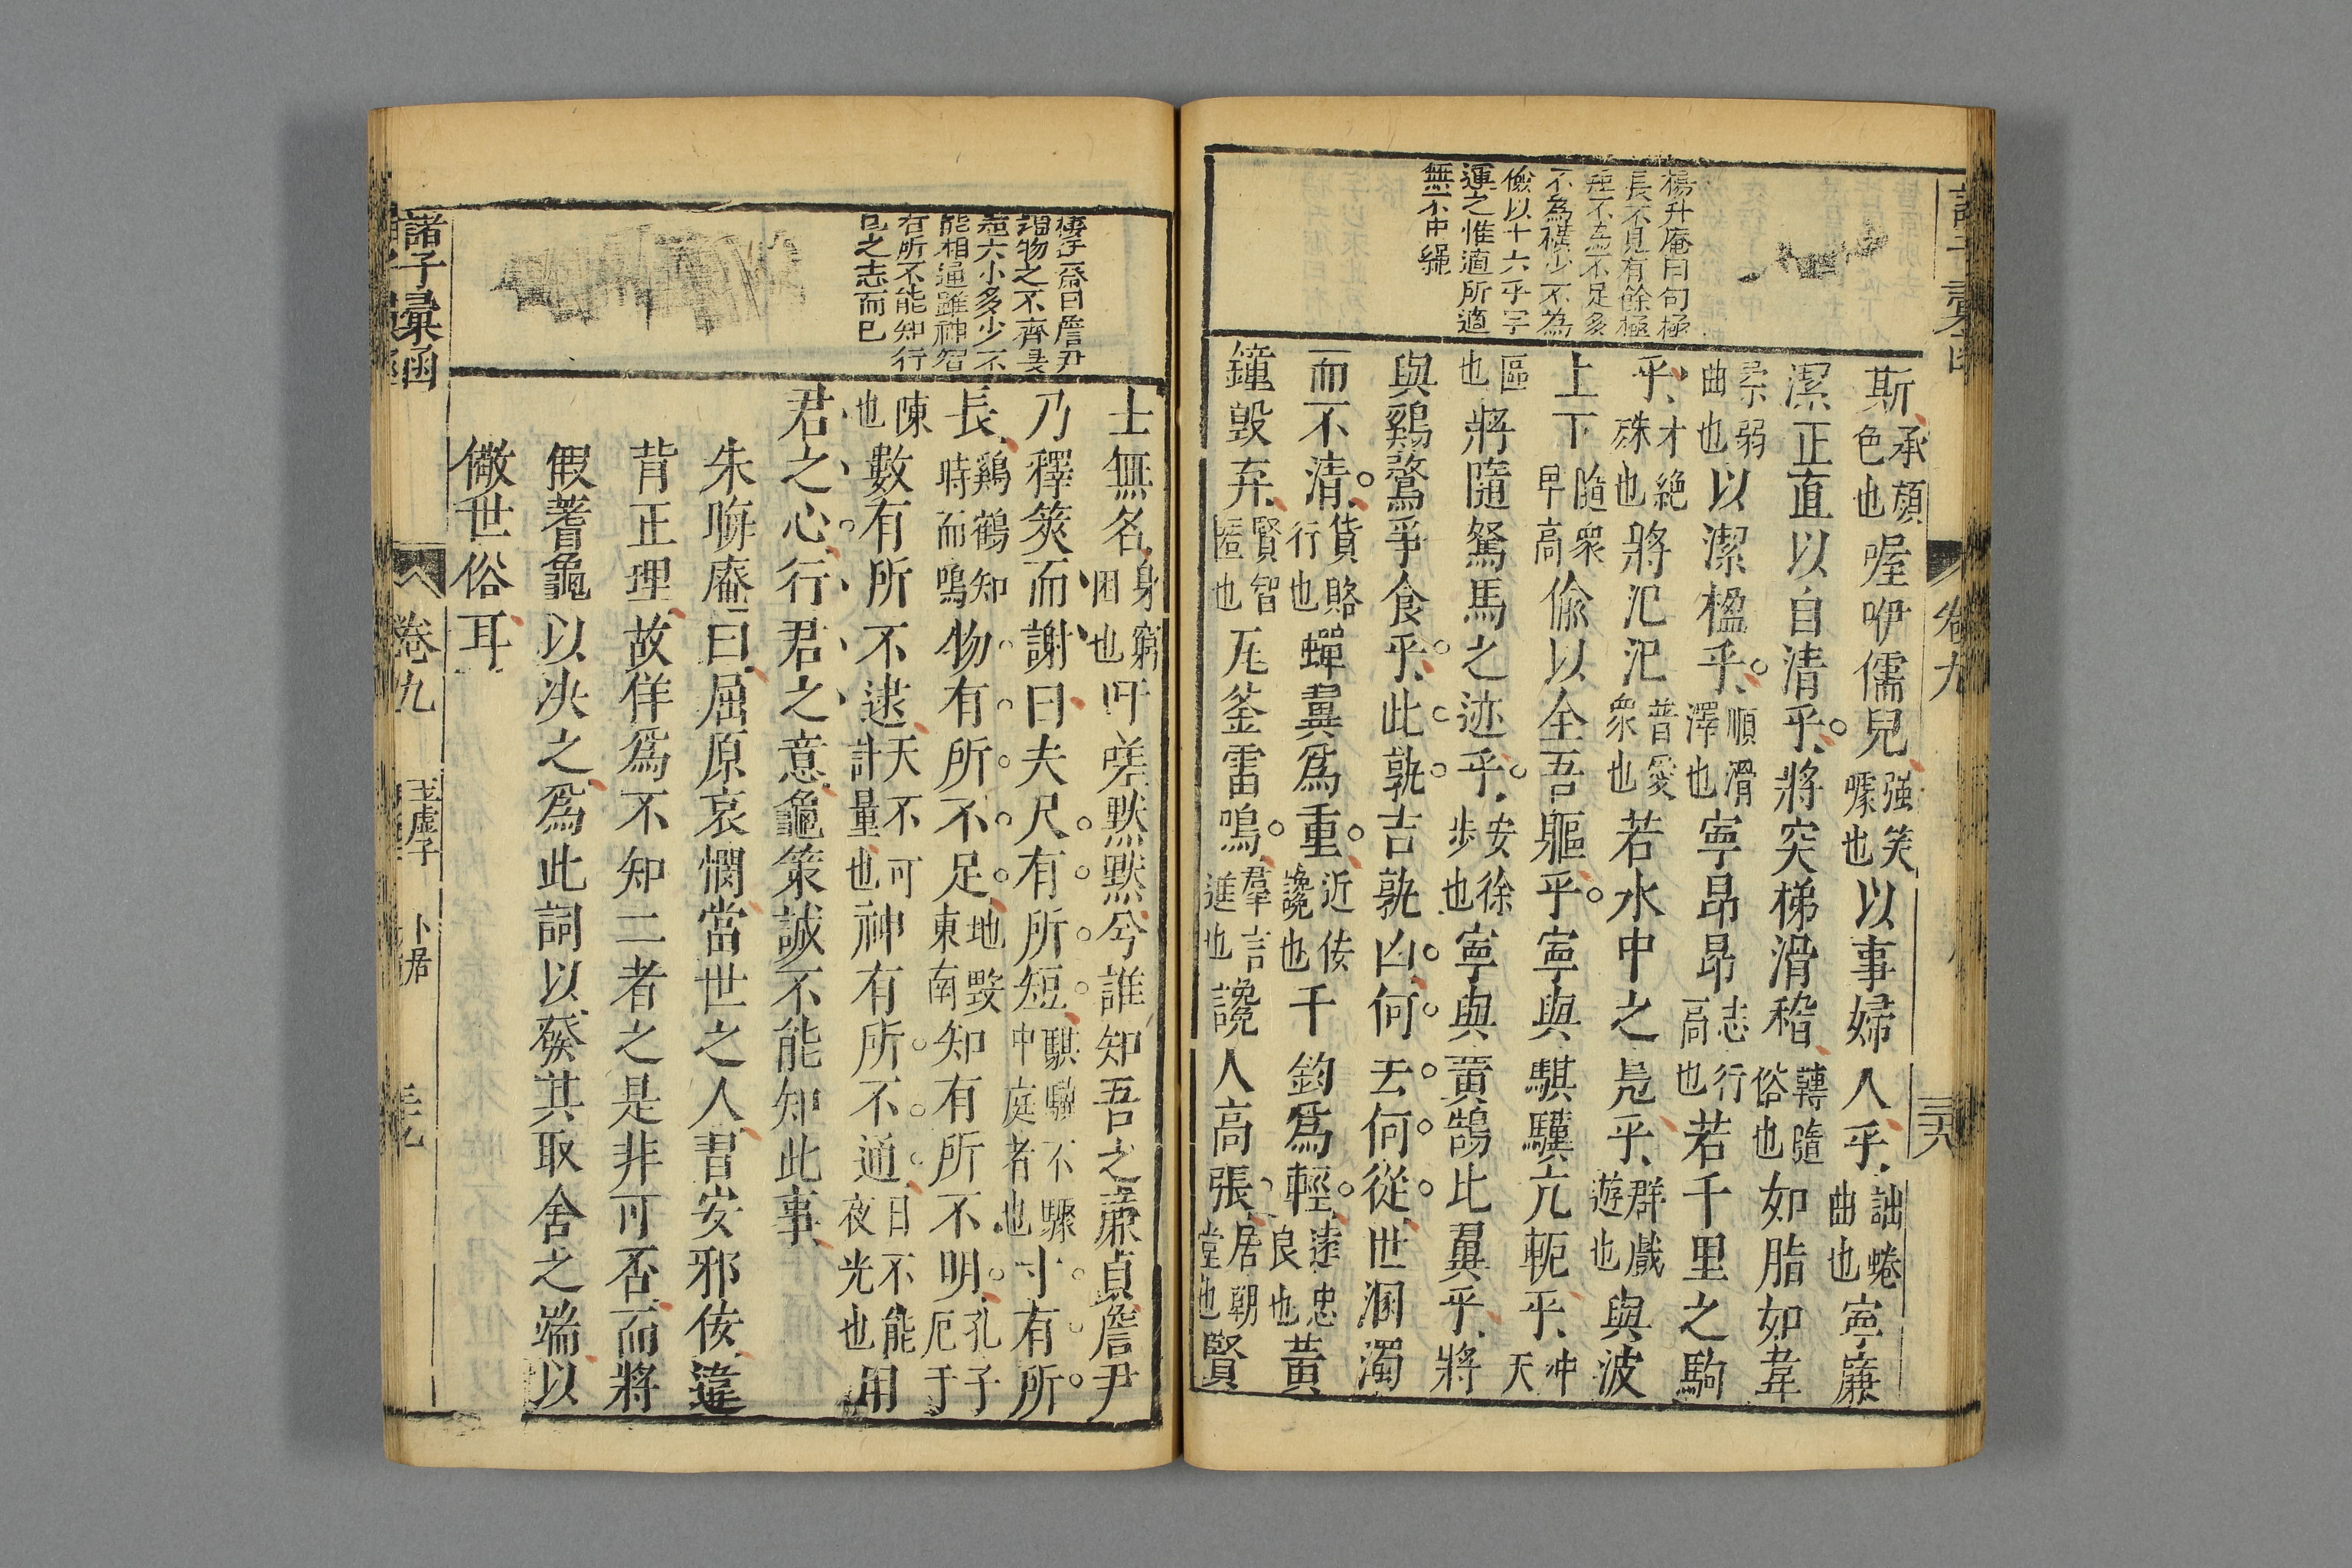 楊升庵曰句極
長不見有餘極
短不為不足多
不為穠少不為
儉以十六乎字
運之惟適所適
無不中繩
斯承顏色也喔咿儒兒强笑噱也以事婦人乎詘蜷曲也寧廉
潔正直以自清乎將突梯滑稽轉隨俗也如脂如韋
柔弱曲也以潔楹乎順滑澤也寧昂昂志行高也若千里之駒
乎才絶殊也將氾氾普愛衆也若水中之鳧乎群戲遊也與波
上下隨衆卑高偷以全吾軀乎寧與騏驥亢軛乎冲天
區也將隨駑馬之迹乎安徐步也寧與黃鵠比翼乎將
與鷄鶩爭食乎此孰吉孰凶何去何從世溷濁
而不清貨賂行也蟬翼爲重近佞讒也千鈞爲輕遠忠良也黃
鐘毀弃賢智匿也瓦釜雷鳴羣言進也讒人高張居朝堂也賢
諸子彙函
卷九
三十八
樓迂齋曰詹尹
謂物之不齊長
短大小多少不
能相通雖神智
有所不能知行
己之志而已
士無名身窮困也吁嗟默默兮誰知吾之亷貞詹尹
乃釋筴而謝曰夫尺有所短騏驥不驟中庭者也寸有所
長鷄鶴知時而鳴物有所不足地毀東南知有所不明孔子厄于
陳也數有所不逮天不可計量也神有所不通日不能夜光也用
君之心行君之意龜策誠不能知此事
朱晦庵曰屈原哀憫當世之人習安邪佞違
背正理故佯爲不知二者之是非可否而將
假蓍龜以决之爲此詞以發其取舍之端以
儆世俗耳
諸子彙函
卷九
玉虛子
卜居
三十九